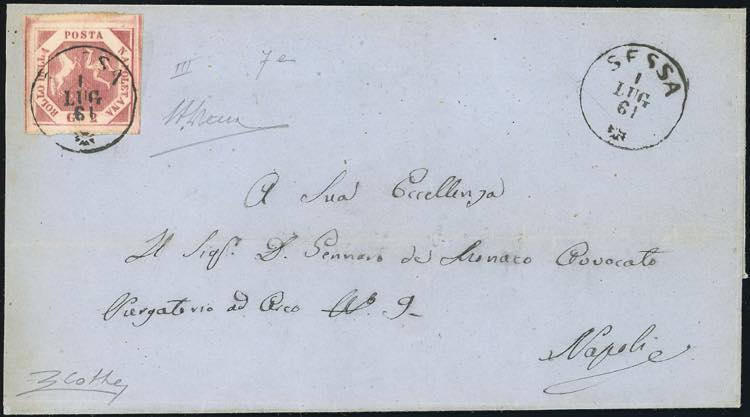 POSTA
NAPOLETANA
BOLLO DELLA
G. 2
SESSA
1
LUG
61
SESSA
1
LUG
61
III 7e
A Sua Eccellenza
Il Sigr. D. Gennaro de Monaco Avvocato
Purgatorio ad Arco No. 9
Napoli